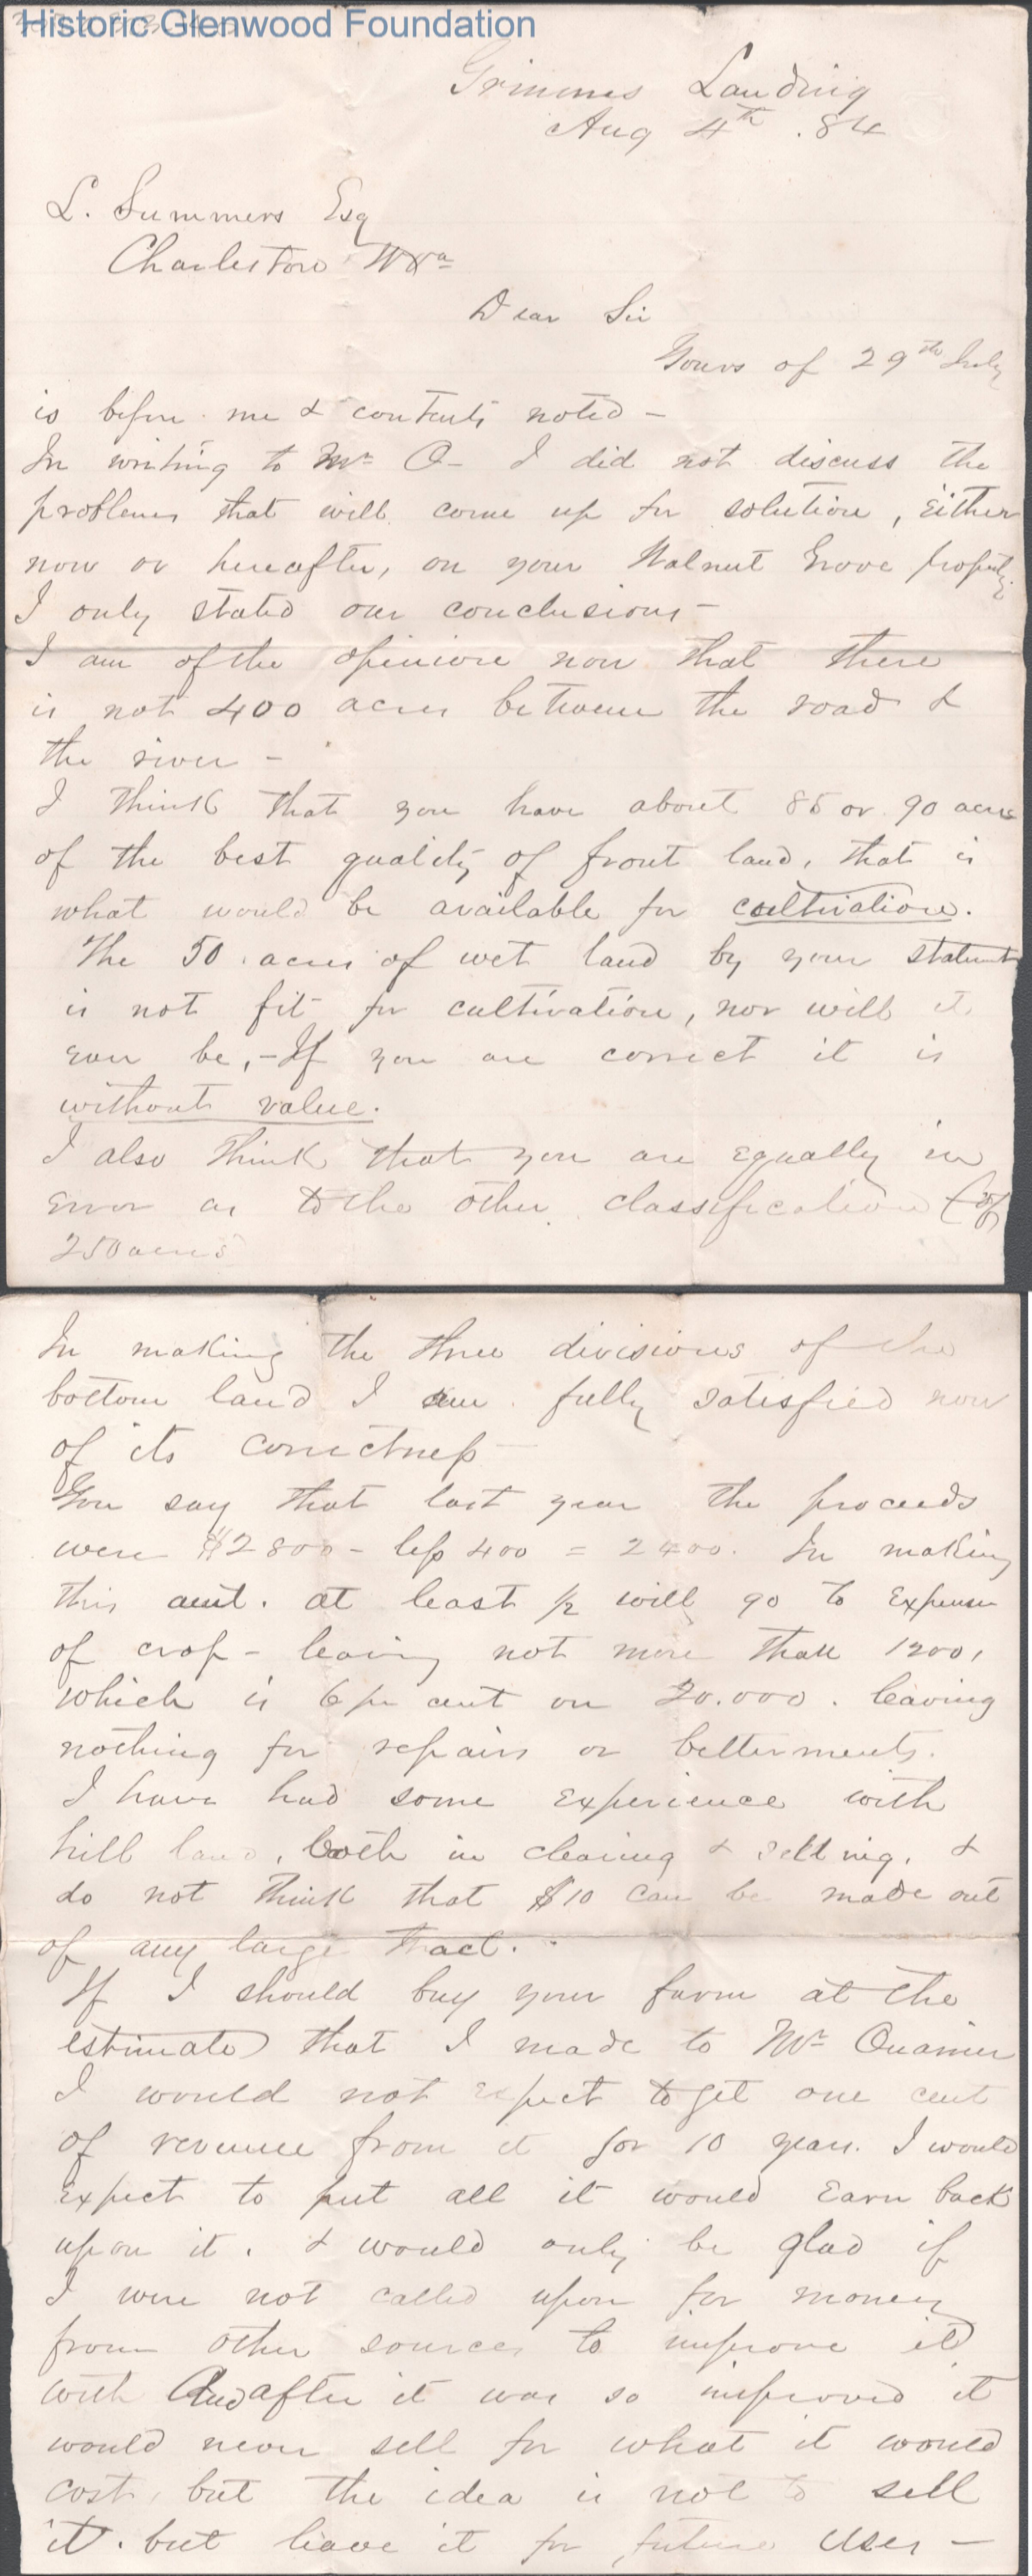 Historic Glenwood Foundation
Grimms Landing
Aug 4th . 84
L. Summers Esq
Charleston WVa
Dear Sir
Yours of 29th July
is before me & contents noted -
In writing to Mr Q- I did not discuss the
problems that will come up for solution, either
now or hereafter, on your Walnut Grove property.
I only stated our conclusions -
I am of the opinion now that there
is not 400 acres between the road &
the river -
I think that you have about 85 or 90 acres
of the best quality of front land, that is
what would be available for cultivation.
The 50 acres of wet land by your statement
is not fit for cultivation, nor will it
ever be, - If you are correct it is
without value.
I also think that you are equally in
error as to the other classification (of
250 acres
In making the three divisions of the
bottom land I am fully satisfied now
of its correctness
You say that last year the proceeds
were $2800 - less 400 = 2400. In making
this amt. at least 1/2 will go to expense
of crop - leaving not more than 1200,
which is 6 per cent on 20.000. leaving
nothing for repairs or betterments.
I have had some experience with
hill land, both in clearing & selling, &
do not think that $10 can be made out
of any large tract.
If I should buy your farm at the
estimate that I made to Mr Quarrier
I would not expect to get one cent
of revenue from it for 10 years. I would
expect to put all it would earn back
upon it. & would only be glad if
I were not called upon for money
from other sources to improve it
with And after it was so improved it
would never sell for what it would
cost, but the idea is not to sell
it. but leave it for future uses -